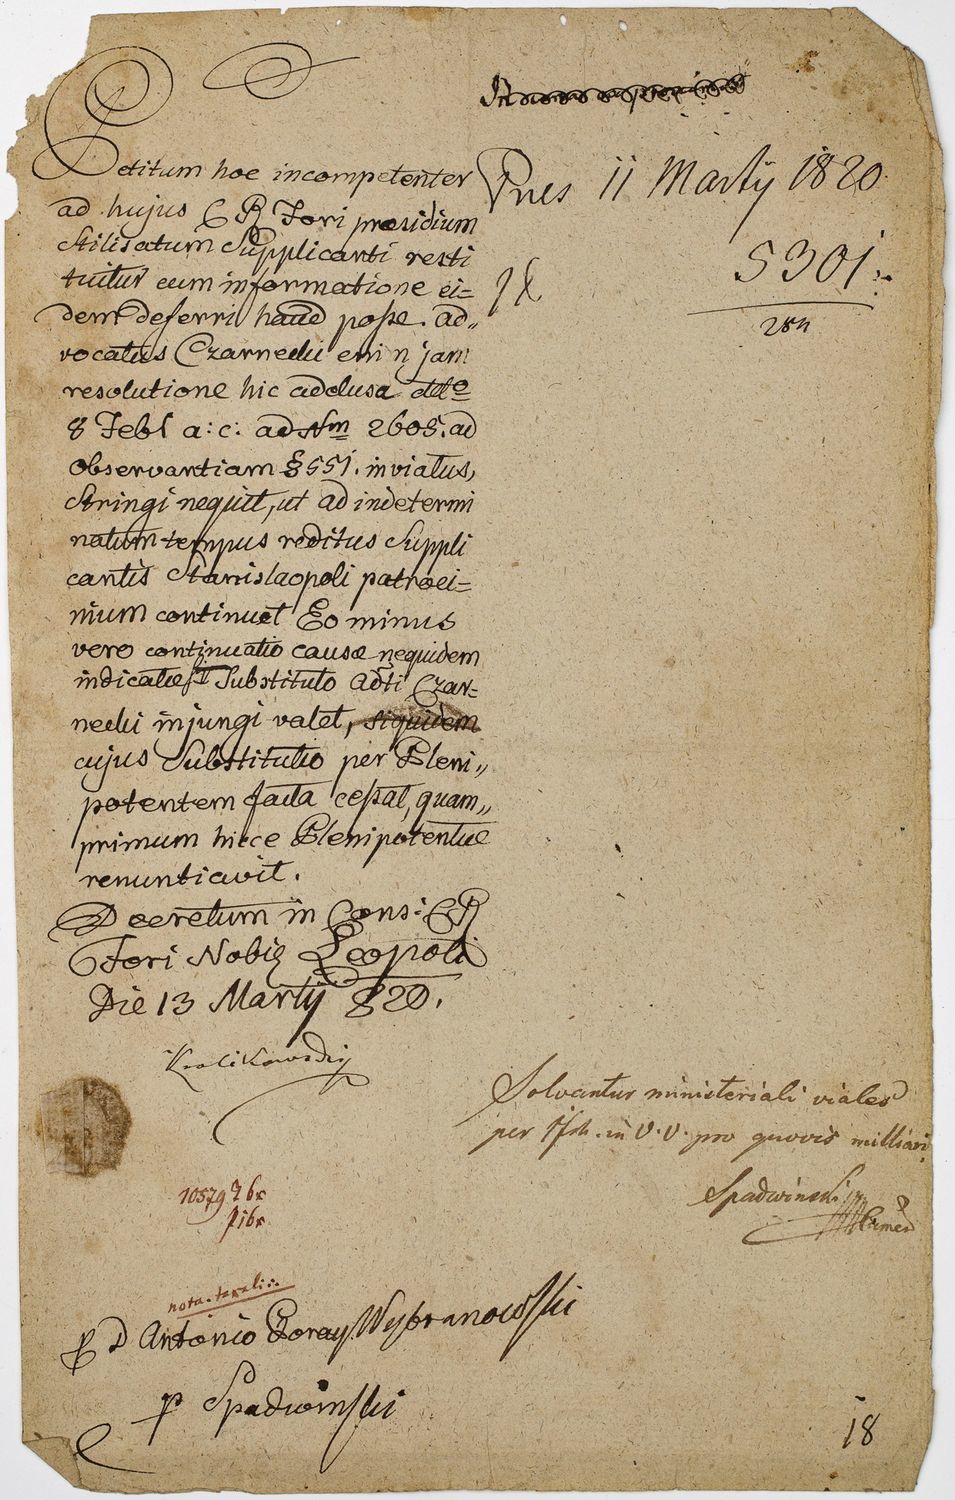 Petitum hoc incompetenter
ad hujus C R Fori præsidium
Stilisatum Supplicanti resti
tuitur cum informatione ei=
dem deferri haud posse. ad„
vocatus Czarnecki eni n jam
resolutione hic adclusa ddto
8 Febl a: c: ad Nm 2605. ad
observantiam § 551. inviatus,
Stringi nequit, ut ad indetermi
natum tempus reditus Suppli
cantis Stanislaopoli patroci=
nium continuet Eo minus
vero continuatio causæ nequidem
indicatæ Substituto adti Czar=
necki injungi valet, siquidem
cujus Substitutio per Pleni„
potentem facta cessat, quam„
primum hicce Plenipotentiæ
renuntiavit.
Decretum in Cons: CR
Fori Nobil Leopoli
Die 13 Martij 820.
Krolikowski
Pres 11 Martij 1820
5301.
Solvantur ministeriali viales
per in V. V. pro quovis milliari
Spadwinski
10579
nota taxali:
p D Antonio Doray Wybranowski
p Spadwinski
18